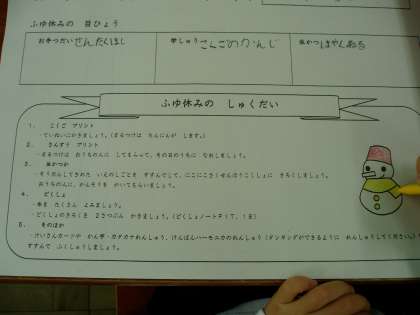 ふゆ休みの 目ひょう
お手つだい せんたくほし
学しゅう さんごのかんじ
生かつ はやくおきる
ふゆ休みの しゅくだい
1. こくご プリント
・ていねいにかきましょう。(まるつけは たんにんが します。)
2. さんすう プリント
・まるつけは おうちの人に してもらって、その日のうちに なおしましょう。
3. 生かつか
・そうだんしてきめた いえのしごとを すすんでして、にこにこさくせんほうこくしょに きろくしましょう。
おうちの人に、かんそうを かいてもらいましょう。
4. どくしょ
・本を たくさん よみましょう。
・どくしょのきろくを 2さつぶん かきましょう。(どくしょノートP17、18)
5. そのほか
・けいさんカードや かん字・カタカナれんしゅう、けんばんハーモニカのれんしゅう(タンギングができるように れんしゅうしてください。)
すすんで ふくしゅうしましょう。